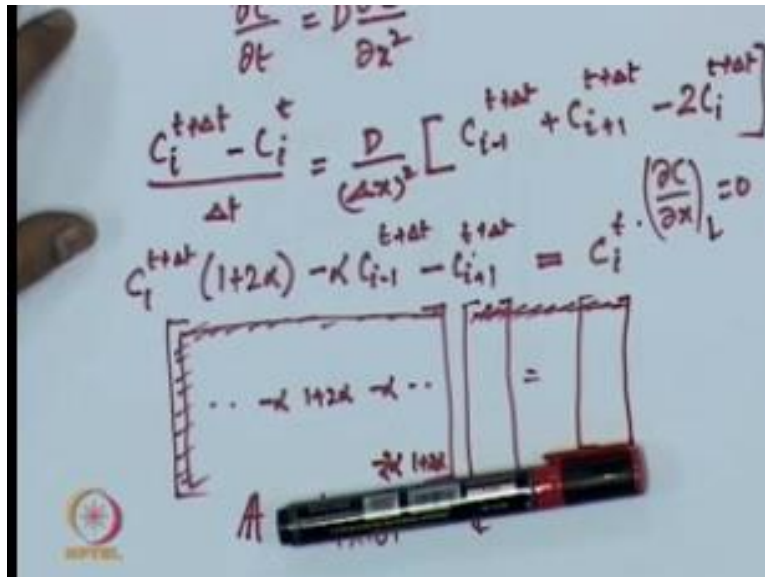 ∂C/∂t = D ∂C/∂x²
(C_i^{t+Δt} - C_i^t)/Δt = D/(Δx)² [C_{i-1}^{t+Δt} + C_{i+1}^{t+Δt} - 2C_i^{t+Δt}]
(∂C/∂x)_L = 0
C_i^{t+Δt} (1+2α) - α C_{i-1}^{t+Δt} - C_{i+1}^{t+Δt} = C_i^t
·· -α 1+2α -α ·· =
-2α 1+2α
A
NPTEL